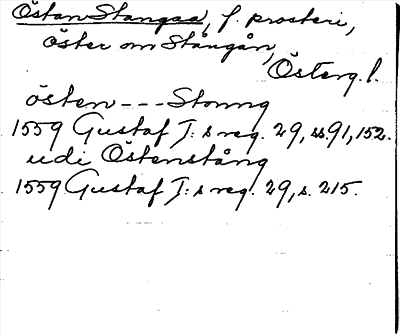 Östan Stangaa, f. prosteri,
öster om Stångån,
Österg. l.
östen --- Stonng
1559 Gustaf I: s reg. 29, ss. 91, 152.
udi Östenstång
1559 Gustaf I: s reg. 29, s. 215.